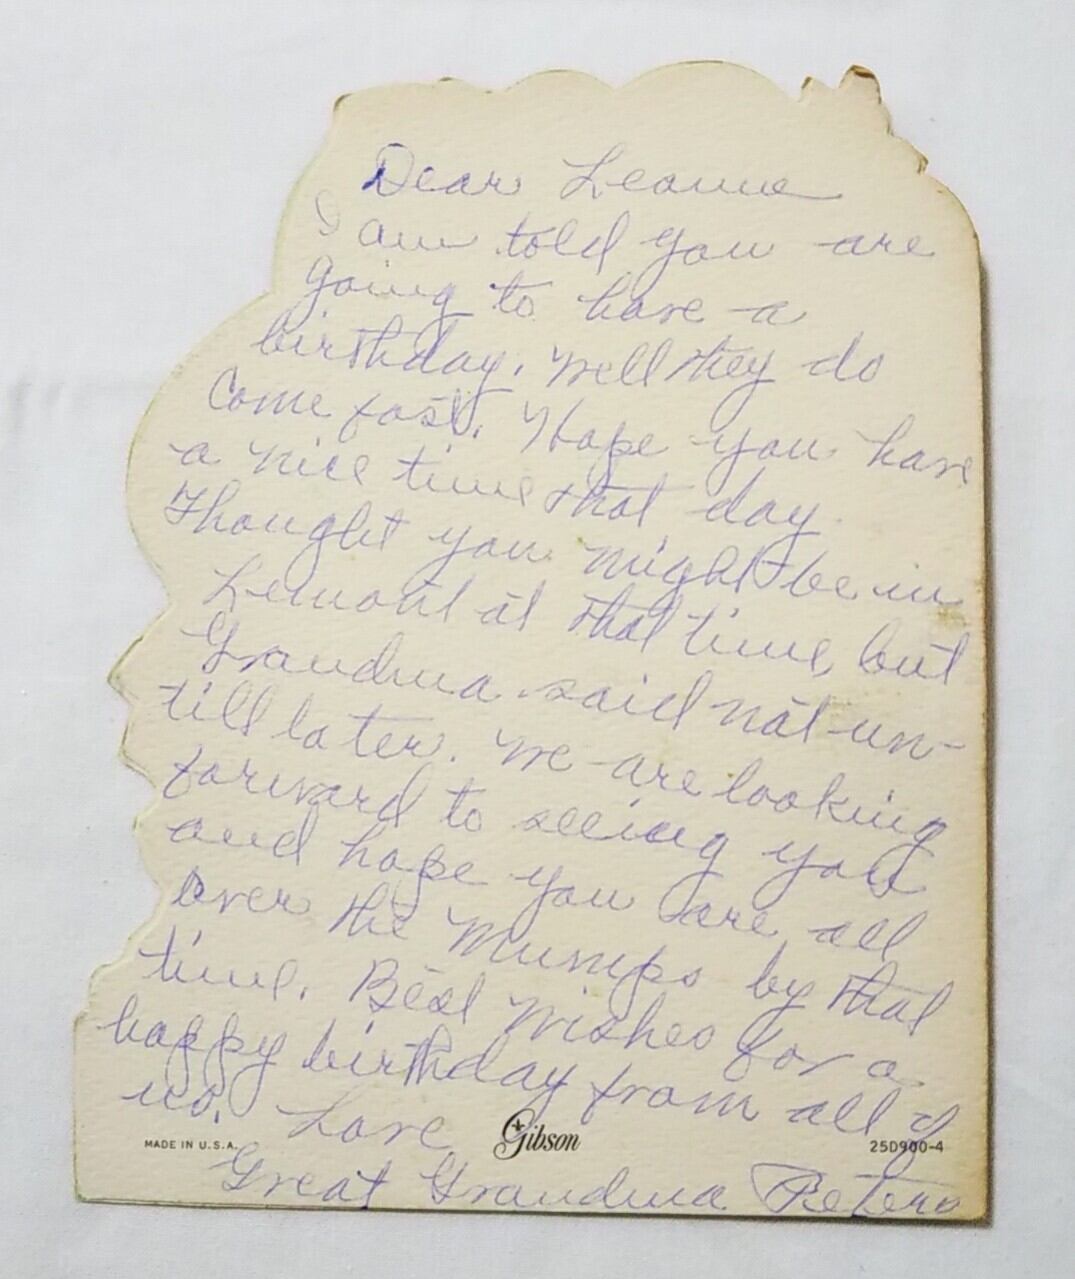 Dear Leanne
I am told you are
going to have a
birthday. Well they do
come fast. Hope you have
a nice time that day.
Thought you might be in
Lemont at that time, but
Grandma said not un-
till later. We are looking
forward to seeing you
and hope you are all
over the Mumps by that
time. Best Wishes for a
happy birthday from all of
us. Love
MADE IN U.S.A. Gibson 25D900-4
Great Grandma Peters